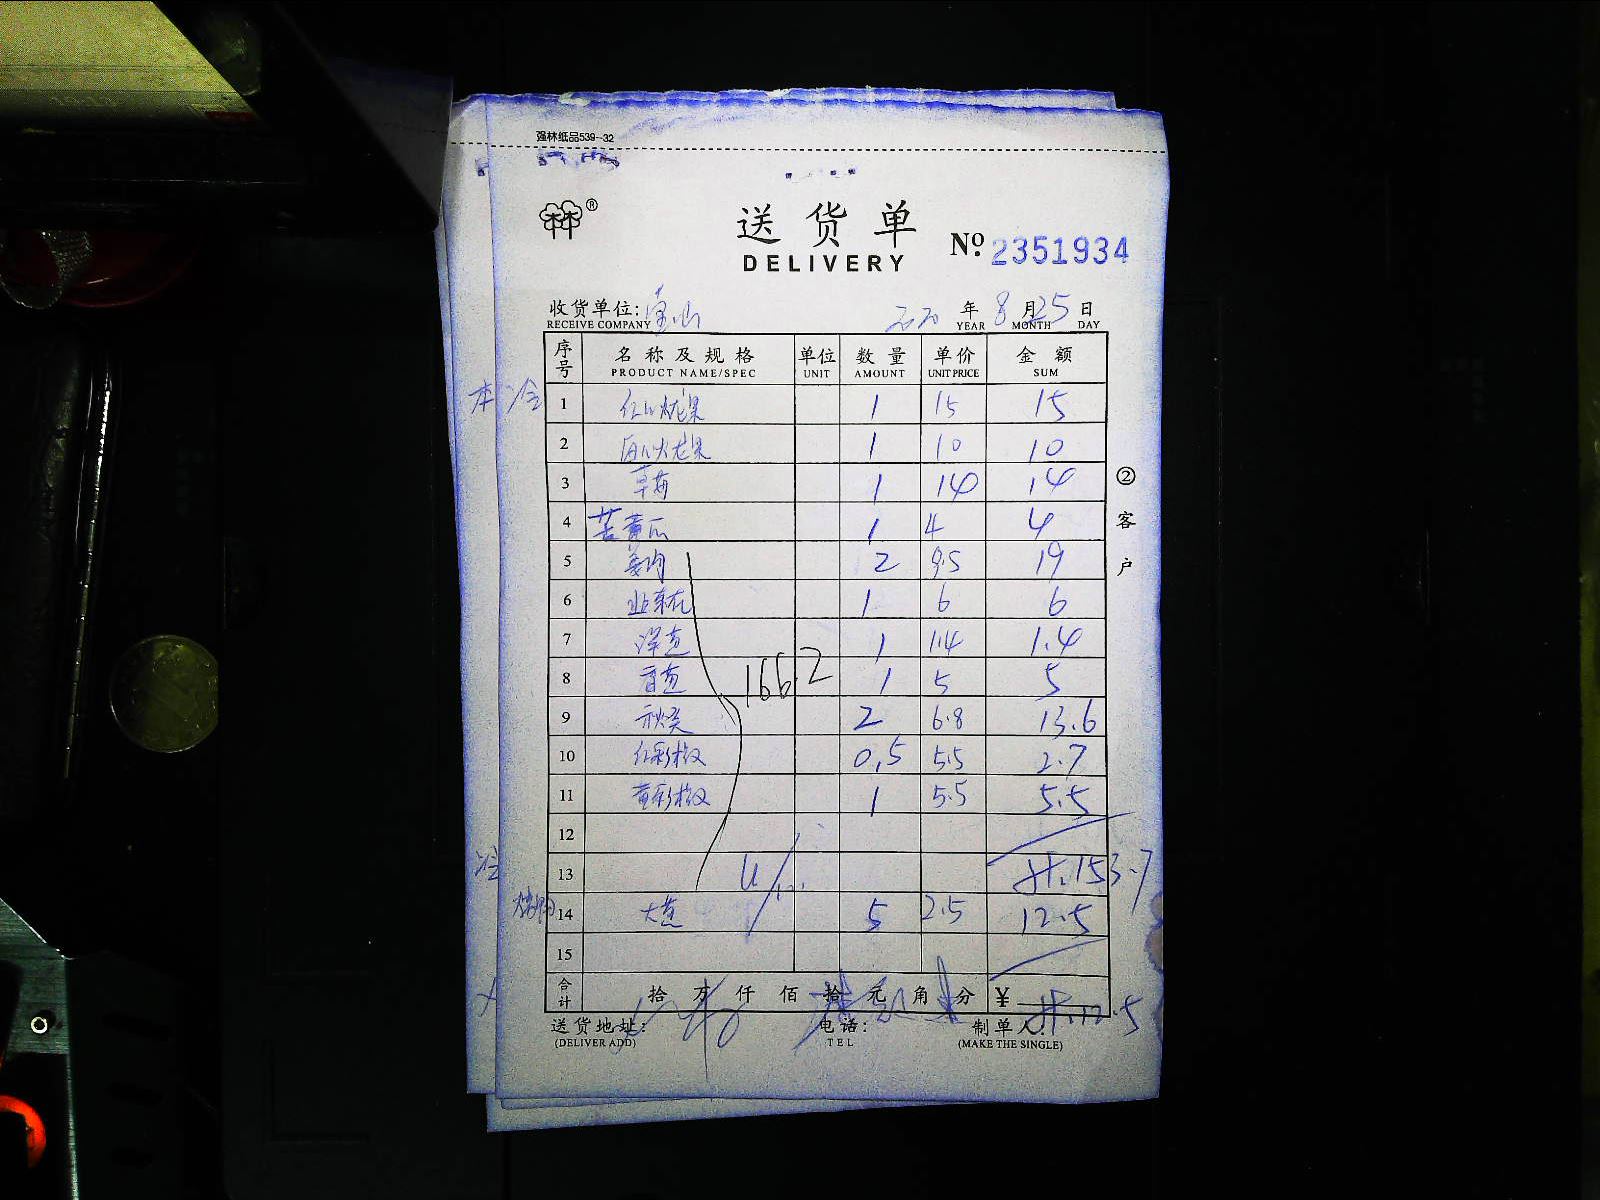 强林纸品539--32
®
送货单
DELIVERY
No. 2351934
收货单位: 宝山 2020 年 8 月 25 日
RECEIVE COMPANY YEAR MONTH DAY
序号 名称及规格 单位 数量 单价 金额
PRODUCT NAME/SPEC UNIT AMOUNT UNIT PRICE SUM
本 冷
1 红心火龙果 1 15 15
2 白心火龙果 1 10 10
3 草莓 1 14 14
4 苦黄瓜 1 4 4
5 姜肉 2 9.5 19
6 韭菜花 1 6 6
7 洋葱 1 1.4 1.4
8 香葱 1 5 5
166.2
9 秋葵 2 6.8 13.6
10 红彩椒 0.5 5.5 2.7
11 黄彩椒 1 5.5 5.5
12
13 共.153.7
14 大葱 5 2.5 12.5
15
合计 拾 万 仟 佰 拾 元 角 分 ¥ 共.12.5
送货地址: 电话: 制单人:
(DELIVER ADD) TEL (MAKE THE SINGLE)
②客户